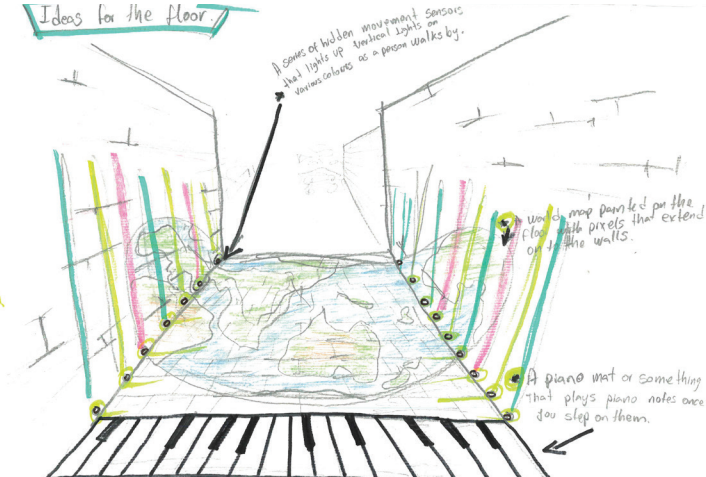 Ideas for the floor.
A series of hidden movement sensors
that lights up vertical lights on
various colours as a person walks by.
A world map painted on the
floor with pixels that extend
on to the walls.
A piano mat or something
that plays piano notes once
you step on them.